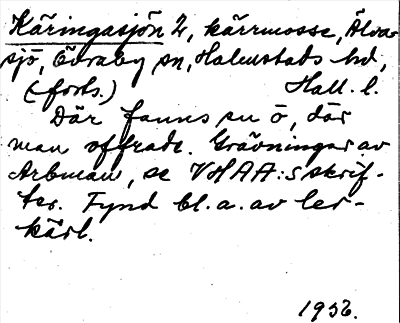 Käringasjön 2, kärrmosse, Älva-
sjö, Övraby sn, Halmstads hd,
(forts.) Hall. l.
Där fanns en ö, där
man offrade. Grävningar av
Arbman, se VHAA:s skrif-
ter. Fynd bl.a. av ler-
kärl.
1956.